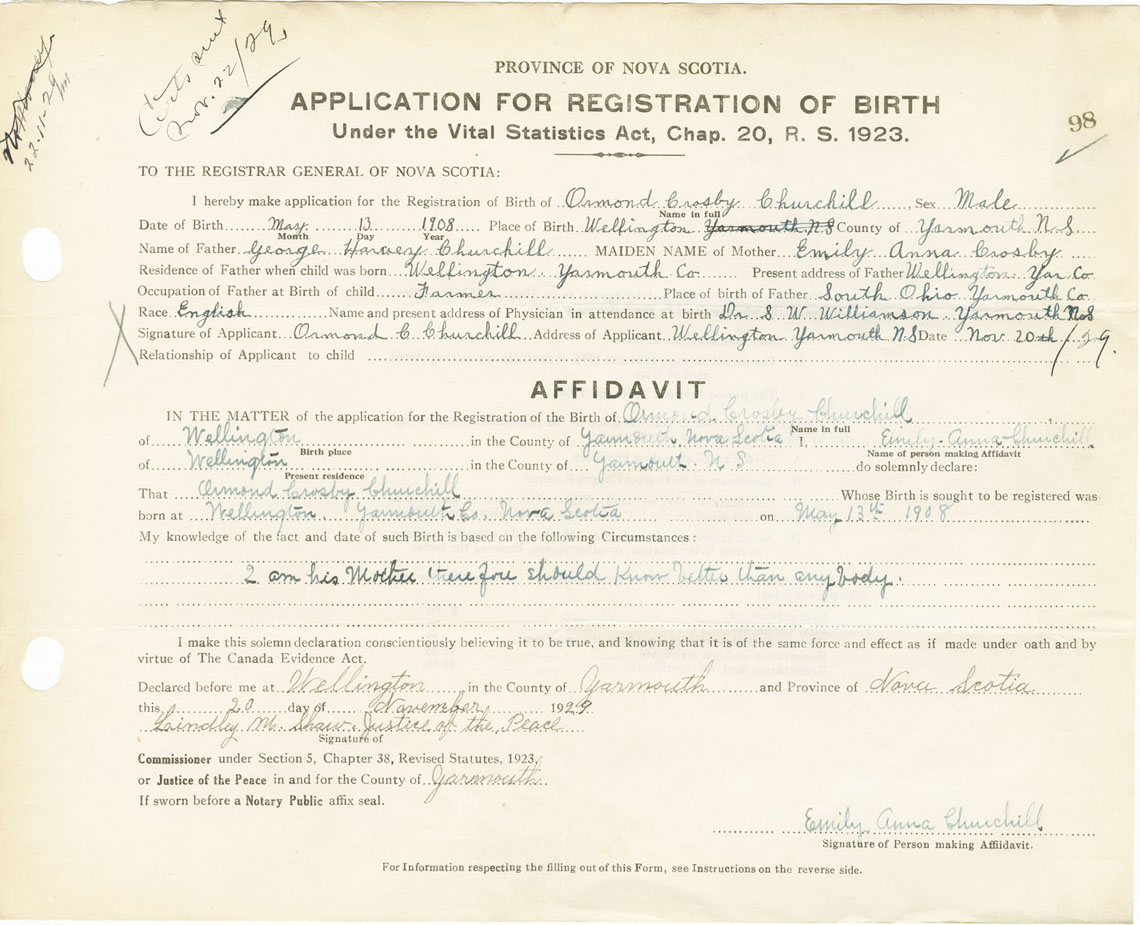 Certs sent
Nov. 22/29.
22-11-29
98
PROVINCE OF NOVA SCOTIA.
APPLICATION FOR REGISTRATION OF BIRTH
Under the Vital Statistics Act, Chap. 20, R. S. 1923.
TO THE REGISTRAR GENERAL OF NOVA SCOTIA:
I hereby make application for the Registration of Birth of Ormond Crosby Churchill Sex Male
Name in full
Date of Birth May 13 1908 Place of Birth Wellington Yarmouth N S County of Yarmouth N. S
Month Day Year
Name of Father George Harvey Churchill MAIDEN NAME of Mother Emily Anna Crosby
Residence of Father when child was born Wellington Yarmouth Co Present address of Father Wellington Yar Co
Occupation of Father at Birth of child Farmer Place of birth of Father South Ohio Yarmouth Co
Race English Name and present address of Physician in attendance at birth Dr. S. W. Williamson Yarmouth N.S
Signature of Applicant Ormond C. Churchill Address of Applicant Wellington Yarmouth N.S Date Nov. 20th /29.
Relationship of Applicant to child
AFFIDAVIT
IN THE MATTER of the application for the Registration of the Birth of Ormond Crosby Churchill
Name in full
of Wellington in the County of Yarmouth, Nova Scotia I, Emily Anna Churchill
Birth place Name of person making Affidavit
of Wellington in the County of Yarmouth. N S do solemnly declare:
Present residence
That Ormond Crosby Churchill Whose Birth is sought to be registered was
born at Wellington, Yarmouth Co. Nova Scotia on May 13th 1908
My knowledge of the fact and date of such Birth is based on the following Circumstances:
I am his Mother therefore should know better than any body.
I make this solemn declaration conscientiously believing it to be true, and knowing that it is of the same force and effect as if made under oath and by
virtue of The Canada Evidence Act.
Declared before me at Wellington in the County of Yarmouth and Province of Nova Scotia
this 20 day of November 1929
Lindley M. Shaw. Justice of the Peace
Signature of
Commissioner under Section 5, Chapter 38, Revised Statutes, 1923,
or Justice of the Peace in and for the County of Yarmouth
If sworn before a Notary Public affix seal.
Emily Anna Churchill
Signature of Person making Affidavit.
For Information respecting the filling out of this Form, see Instructions on the reverse side.